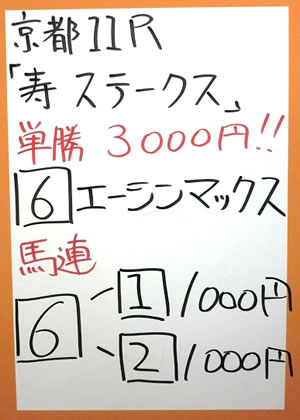 京都11R
「寿ステークス」
単勝 3000円!!
6 エーシンマックス
馬連
6 - 1 1000円
- 2 1000円